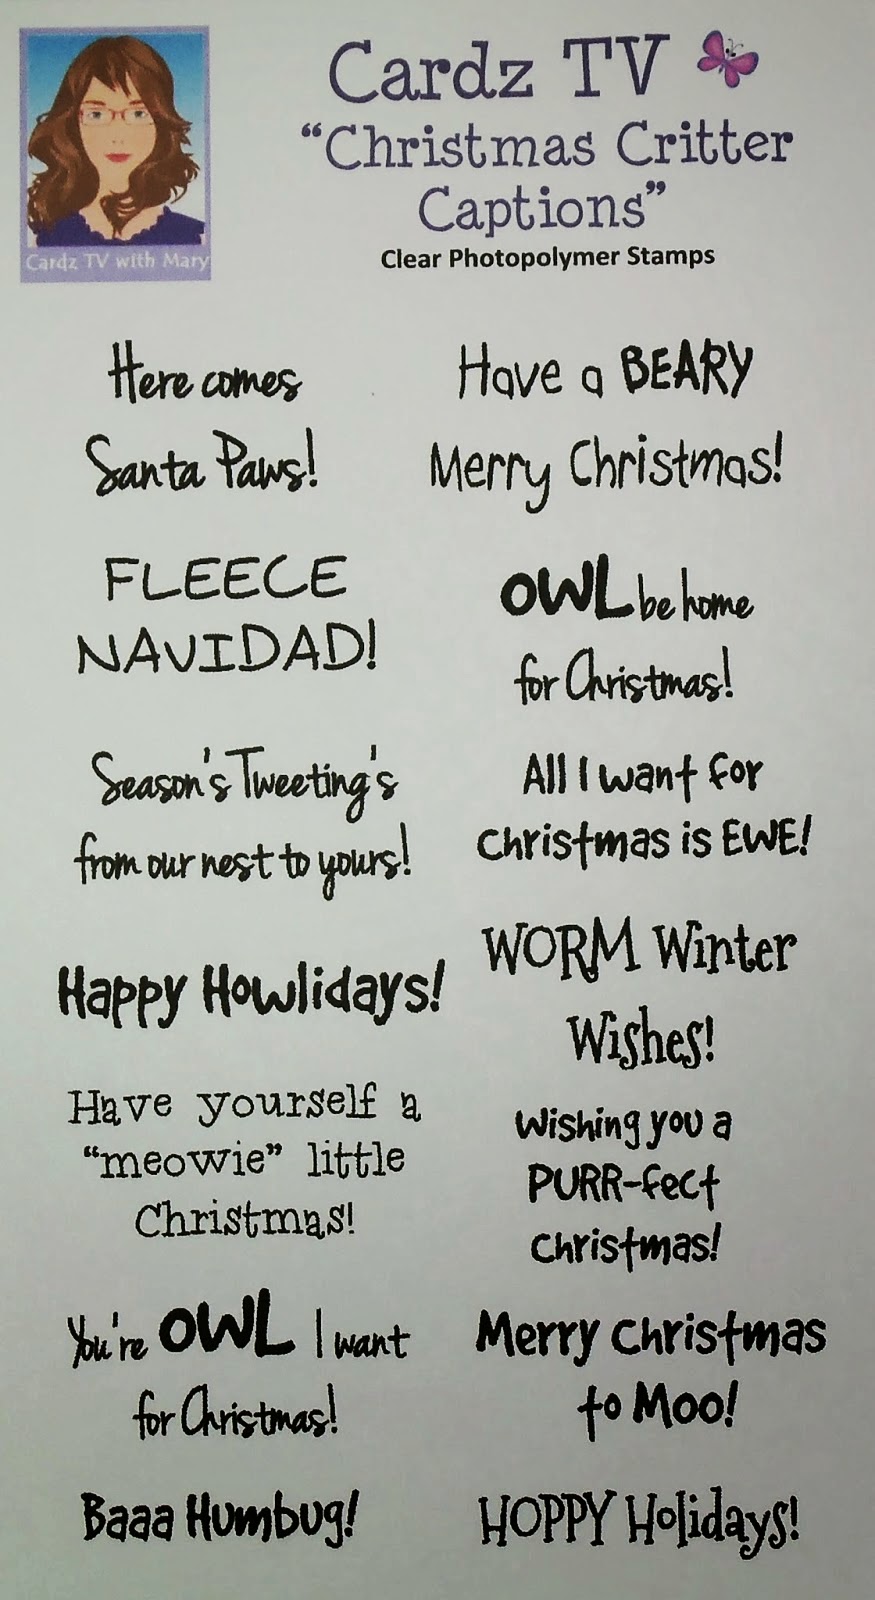 Cardz TV with Mary
Cardz TV
"Christmas Critter
Captions"
Clear Photopolymer Stamps
Here comes
Santa Paws!
Have a BEARY
Merry Christmas!
FLEECE
NAVIDAD!
OWL be home
for Christmas!
Season's Tweeting's
from our nest to yours!
All I want for
Christmas is EWE!
Happy Howlidays!
WORM Winter
Wishes!
Have yourself a
"meowie" little
Christmas!
Wishing you a
PURR-fect
Christmas!
You're OWL I want
for Christmas!
Merry Christmas
to Moo!
Baaa Humbug!
HOPPY Holidays!